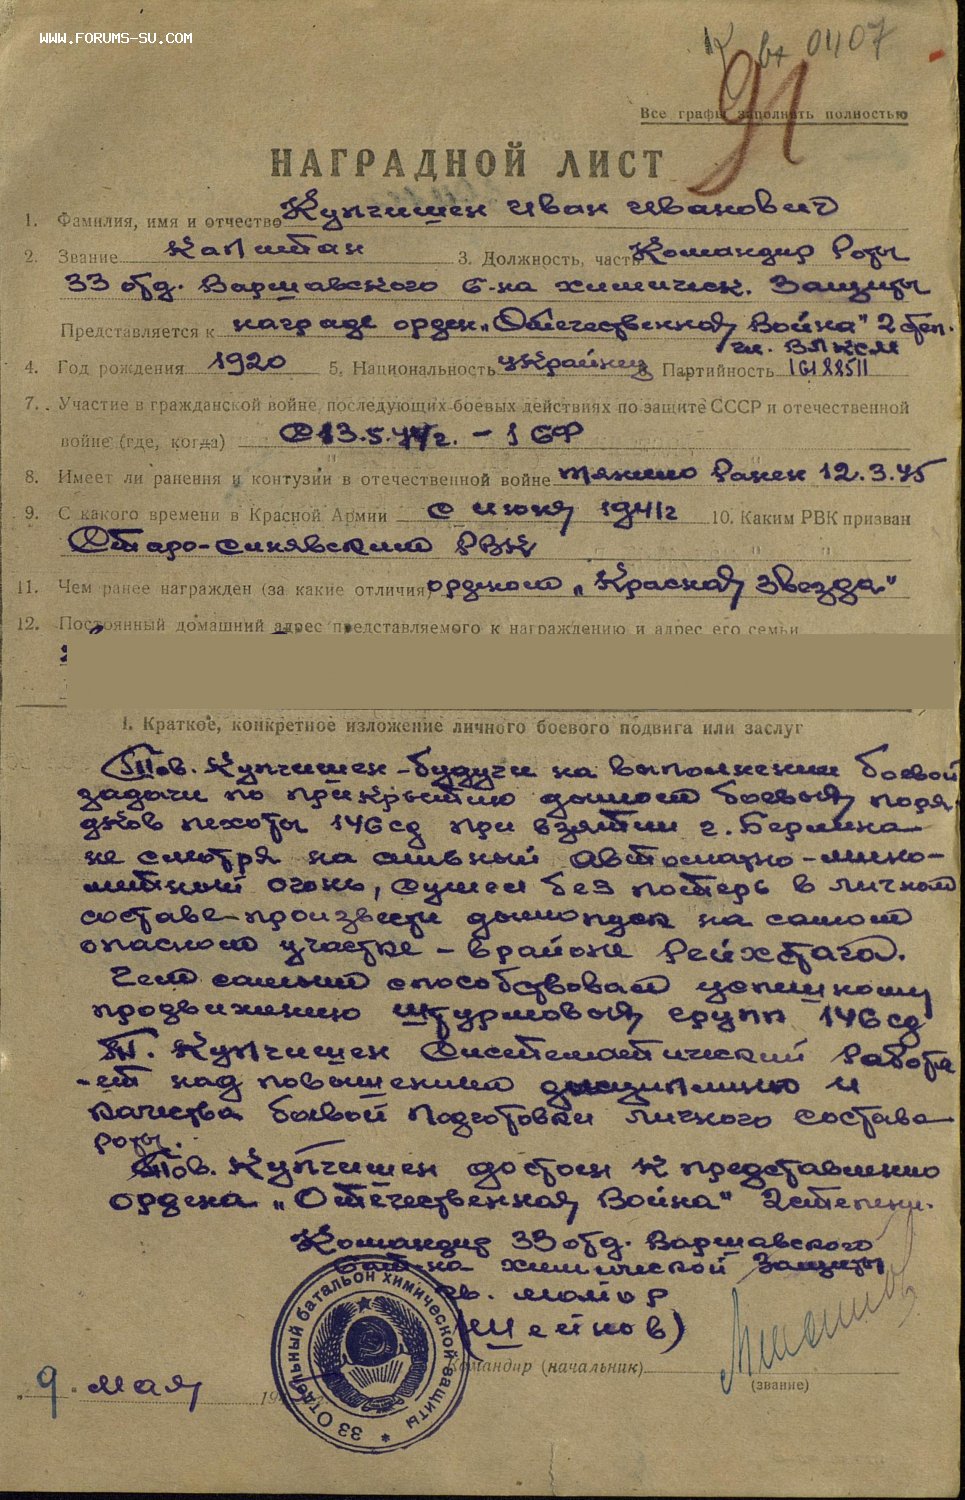 WWW.FORUMS-SU.COM
0407
91
Все графы заполнять полностью
НАГРАДНОЙ ЛИСТ
1. Фамилия, имя и отчество Купчишен Иван Иванович
2. Звание Капитан 3. Должность, часть Командир Роты
33 отд. Варшавского б-на химическ. Защиты
Представляется к награде орден „Отечественная Война" 2 степ.
чл. ВЛКСМ
4. Год рождения 1920 5. Национальность украинец 6. Партийность
7. Участие в гражданской войне, последующих боевых действиях по защите СССР и отечественной
войне (где, когда) С 13.5.44г. - 1 БФ
8. Имеет ли ранения и контузии в отечественной войне тяжело Ранен 12.3.45
9. С какого времени в Красной Армии с июня 1941г 10. Каким РВК призван
Старо-Синявским РВК
11. Чем ранее награжден (за какие отличия) орденом „Красная Звезда"
12. Постоянный домашний адрес представляемого к награждению и адрес его семьи
1. Краткое, конкретное изложение личного боевого подвига или заслуг
Тов. Купчишен - будучи на выполнении боевой
задачи по прикрытию дымом боевых поря-
дков пехоты 146 сд при взятии г. Берлина
не смотря на сильный автоматно-мино-
метный огонь, сумел без потерь в личном
составе произвести дымопуск на самом
опасном участке - в районе Рейхстага.
Чем самым способствовал успешному
продвижению штурмовых групп 146 сд
Т. Купчишен Систематический Работа
-ет над повышением дисциплины и
качества боевой подготовки личного состава
роты.
Тов. Купчишен достоен к представлению
ордена „Отечественная Война" 2 степени.
Командир 33 отд. Варшавского
бат-на химической Защиты
гв. майор
(Шейнов)
Командир (начальник)
(звание)
„9" мая 19
33 Отдельный батальон химической защиты